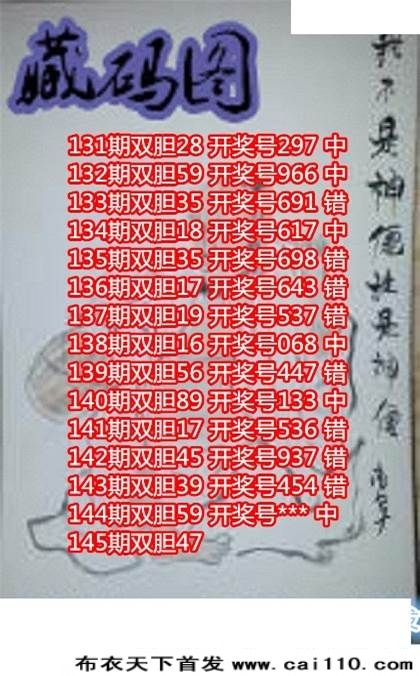 藏码图
131期双胆28 开奖号297 中
132期双胆59 开奖号966 中
133期双胆35 开奖号691 错
134期双胆18 开奖号617 中
135期双胆35 开奖号698 错
136期双胆17 开奖号643 错
137期双胆19 开奖号537 错
138期双胆16 开奖号068 中
139期双胆56 开奖号447 错
140期双胆89 开奖号133 中
141期双胆17 开奖号536 错
142期双胆45 开奖号937 错
143期双胆39 开奖号454 错
144期双胆59 开奖号*** 中
145期双胆47
我不是神仙胜是神仙
布衣天下首发 www.cai110.com